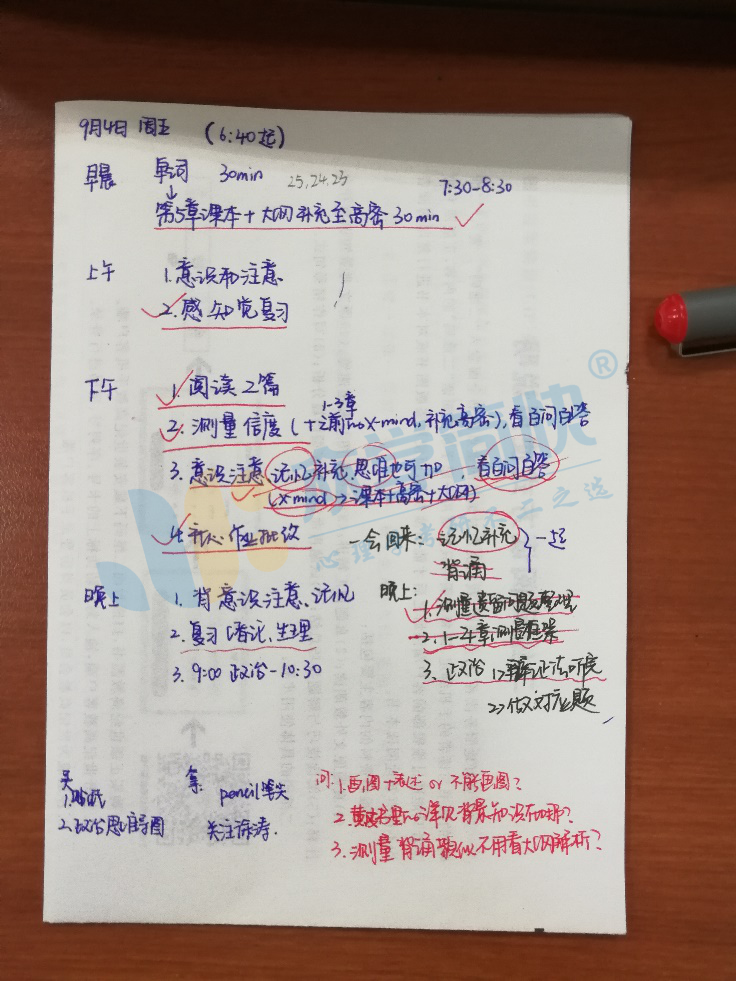 9月4日 周五 (6:40起)
早晨 单词 30min 25,24,23 7:30-8:30
↓
第5章课本+大纲补充至高密 30min
上午 1.意识和注意
2.感知觉复习
下午 1.阅读2篇
1-3章
2.测量信度(+之前的X-mind,补充高密),看百问百答
3.意识注意,记忆补充,思维也可加,看百问百答
(X-mind→课本+高密+大纲)
4. 作业批改
一会回来: 记忆补充 }一起
背诵
晚上 1.背意识注意、记忆
2.复习 生理
3.9:00政治-10:30
晚上:
1.测量遗留问题整理
2.1-4章测量框架
3.政治 1>辩证法听完
2>做对应题
买
2.政治思维导图
拿: pencil
关注徐涛.
问:1.画图+表述 or 不能画图?
2. 背景知识
3.测量背诵 不用看大纲解析?
众学简快®
心理学考研 之选